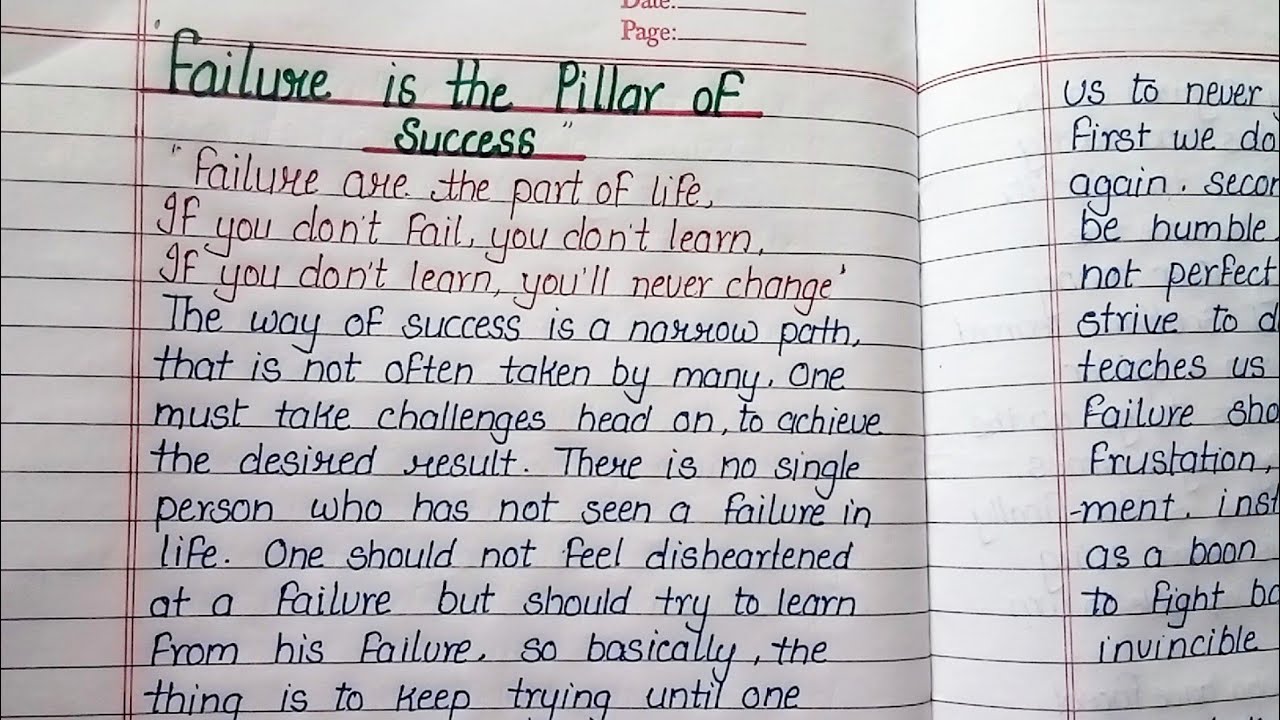 Date:
Page:
"Failure is the Pillar of
Success"
"Failure are the part of life,
If you don't fail, you don't learn,
If you don't learn, you'll never change'
The way of success is a narrow path,
that is not often taken by many. One
must take challenges head on, to achieve
the desired result. There is no single
person who has not seen a failure in
life. One should not feel disheartened
at a failure but should try to learn
from his failure. so basically, the
thing is to keep trying until one
us to never
first we do
again. secon
be humble
not perfect
strive to d
teaches us
failure sho
frustation,
-ment. inst
as a boon
to fight ba
invincible